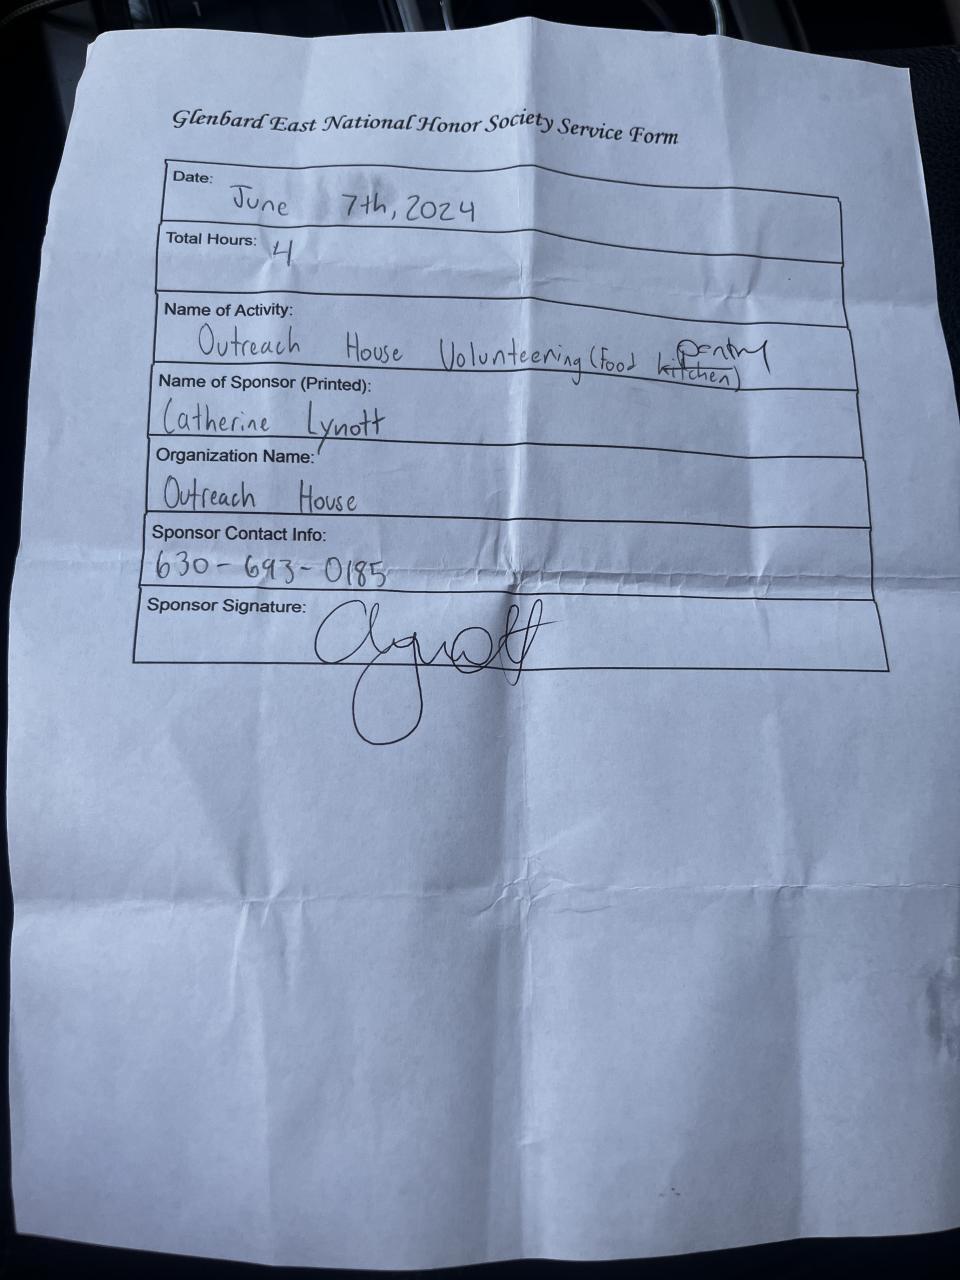 Glenbard East National Honor Society Service Form
Date:
June 7th, 2024
Total Hours: 4
Name of Activity:
pantry
Outreach House Volunteering (Food kitchen)
Name of Sponsor (Printed):
Catherine Lynott
Organization Name:
Outreach House
Sponsor Contact Info:
630-693-0185
Sponsor Signature: Clynott